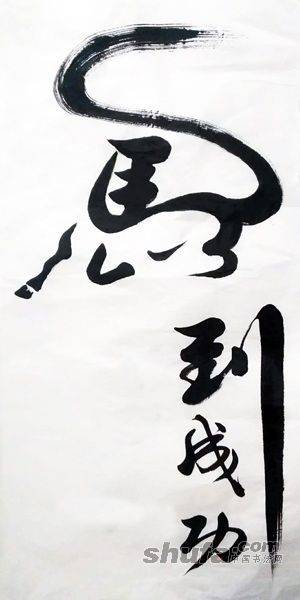 馬到成功
shufa.com
中国书法网